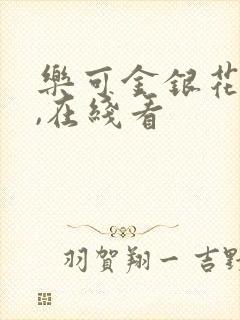 樂可金銀花
,在綫看
羽賀翔一 吉野